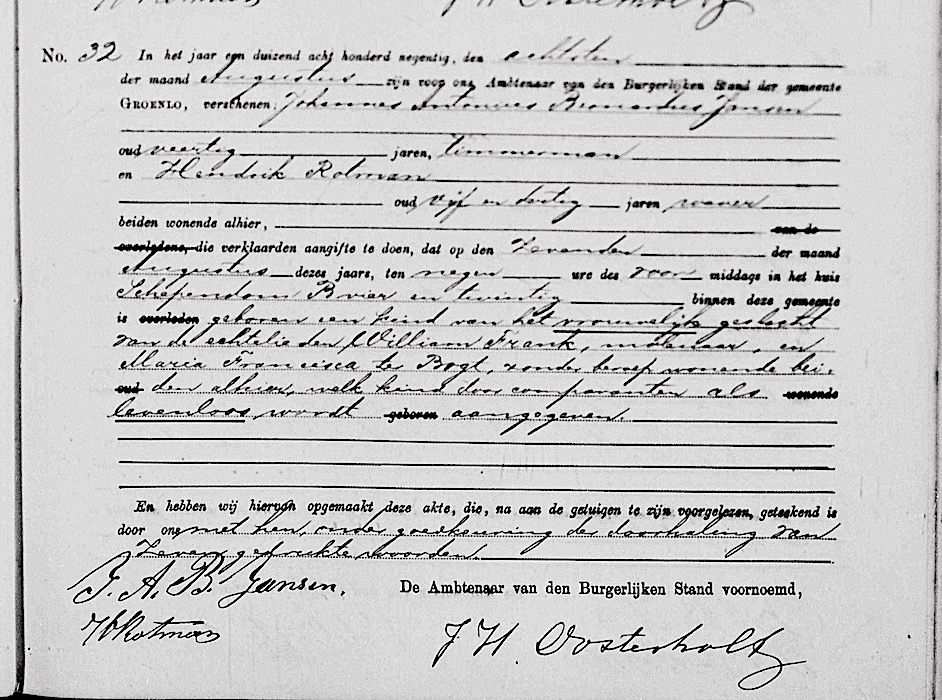 J H Oosterholtz
No. 32 In het jaar een duizend acht honderd negentig, den achtsten
der maand Augustus zijn voor ons Ambtenaar van den Burgerlijken Stand der gemeente
GROENLO, verschenen: Johannes Antonius Bernardus Jansen
oud veertig jaren, timmerman
en Hendrik Rotman
oud vijf en dertig jaren wever
beiden wonende alhier, van de
overledene, die verklaarden aangifte te doen, dat op den Zevenden der maand
Augustus dezes jaars, ten negen ure des voor middags in het huis
Schependom B vier en twintig binnen deze gemeente
is overleden geboren een kind van het vrouwelijk geslacht
van de echtelieden William Frank, molenaar, en
Maria Francisca te Bogt, zonder beroep wonende bei-
oud den alhier, welk kind door comparanten als wonende
levenloos wordt geboren aangegeven.
En hebben wij hiervan opgemaakt deze akte, die, na aan de getuigen te zijn voorgelezen, geteekend is
door ons met hen, onder goedkeuring der doorhaling van
Zeven gedrukte woorden.
J. A. B. Jansen.
De Ambtenaar van den Burgerlijken Stand voornoemd,
H Rotman
J H. Oosterholtz